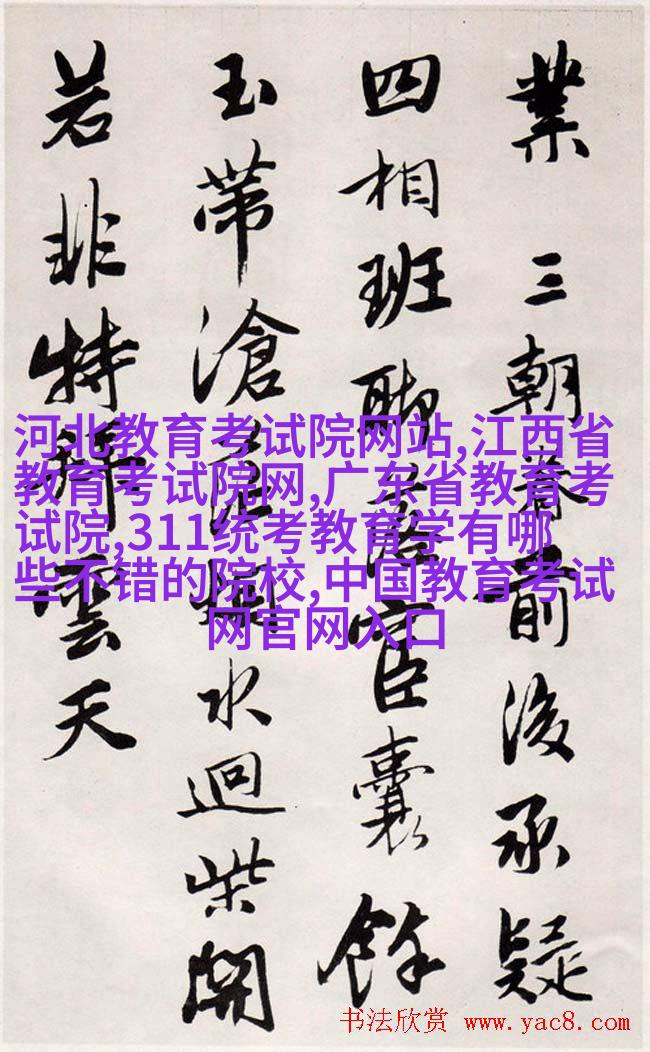 業三朝眷前後承疑
四相班聯宦囊餘
玉帶滄水迴柴開
若非特拜雲天
河北教育考试院网站,江西省
教育考试院网,广东省教育考
试院,311统考教育学有哪
些不错的院校,中国教育考试
网官网入口
书法欣赏 www.yac8.com